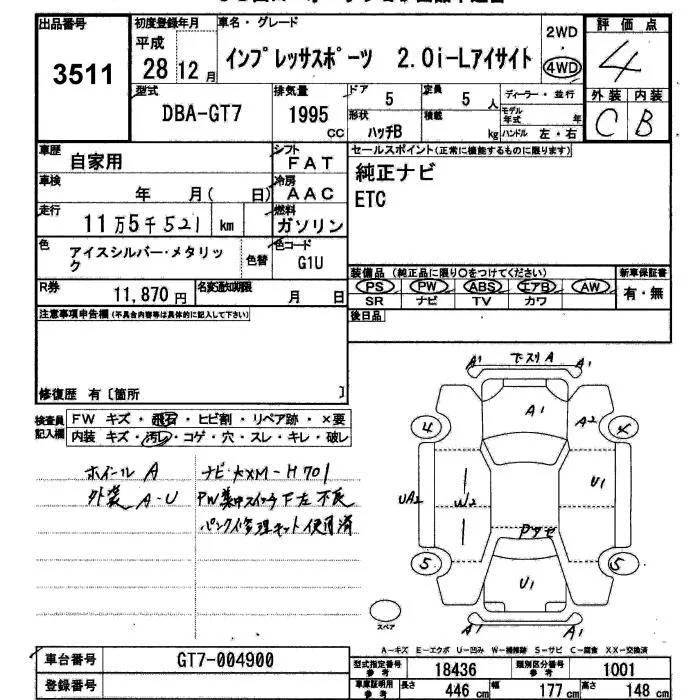 出品番号
3511
初度登録年月
平成
28 12 月
車名・グレード
インプレッサスポーツ 2.0i-Lアイサイト
2WD
4WD
評価点
4
型式
DBA-GT7
排気量
1995
CC
ドア
5
定員
5 人
ディーラー・並行
モデル年式 年
形状
ハッチB
積載
kg
ハンドル 左・右
外装 内装
C B
車歴
自家用
シフト
FAT
セールスポイント(正常に機能するものに限ります)
純正ナビ
ETC
車検
年 月( 日)
冷房
AAC
走行
11万5千521 km
燃料
ガソリン
色
アイスシルバー・メタリック
色替
色コード
G1U
R券
11,870 円
名変通知期限
月 日
装備品 (純正品に限り○をつけてください)
新車保証書
PS PW ABS エアB AW
有・無
SR ナビ TV カワ
注意事項申告欄(不具合内容等は具体的に記入して下さい)
後日品
修復歴 有〔箇所 〕
検査員記入欄
FW キズ・飛石・ヒビ割・リペア跡・×要
内装 キズ・汚レ・コゲ・穴・スレ・キレ・破レ
ホイールA
外装 A-U
PW集中スイッチ 下左 不良
パンク修理キット使用済
A1 下スリA A1
A1
A2
4 4
UA2
U1
5 5
U1
A1 A1
スペア
A-キズ E-エクボ U-凹み W-補修跡 S-サビ C-腐食 XX-交換済
車台番号
GT7-004900
登録番号
型式指定番号 参考
18436
類別区分番号 参考
1001
車庫証明用 参考
長さ 446 cm
幅 177 cm
高さ 148 cm